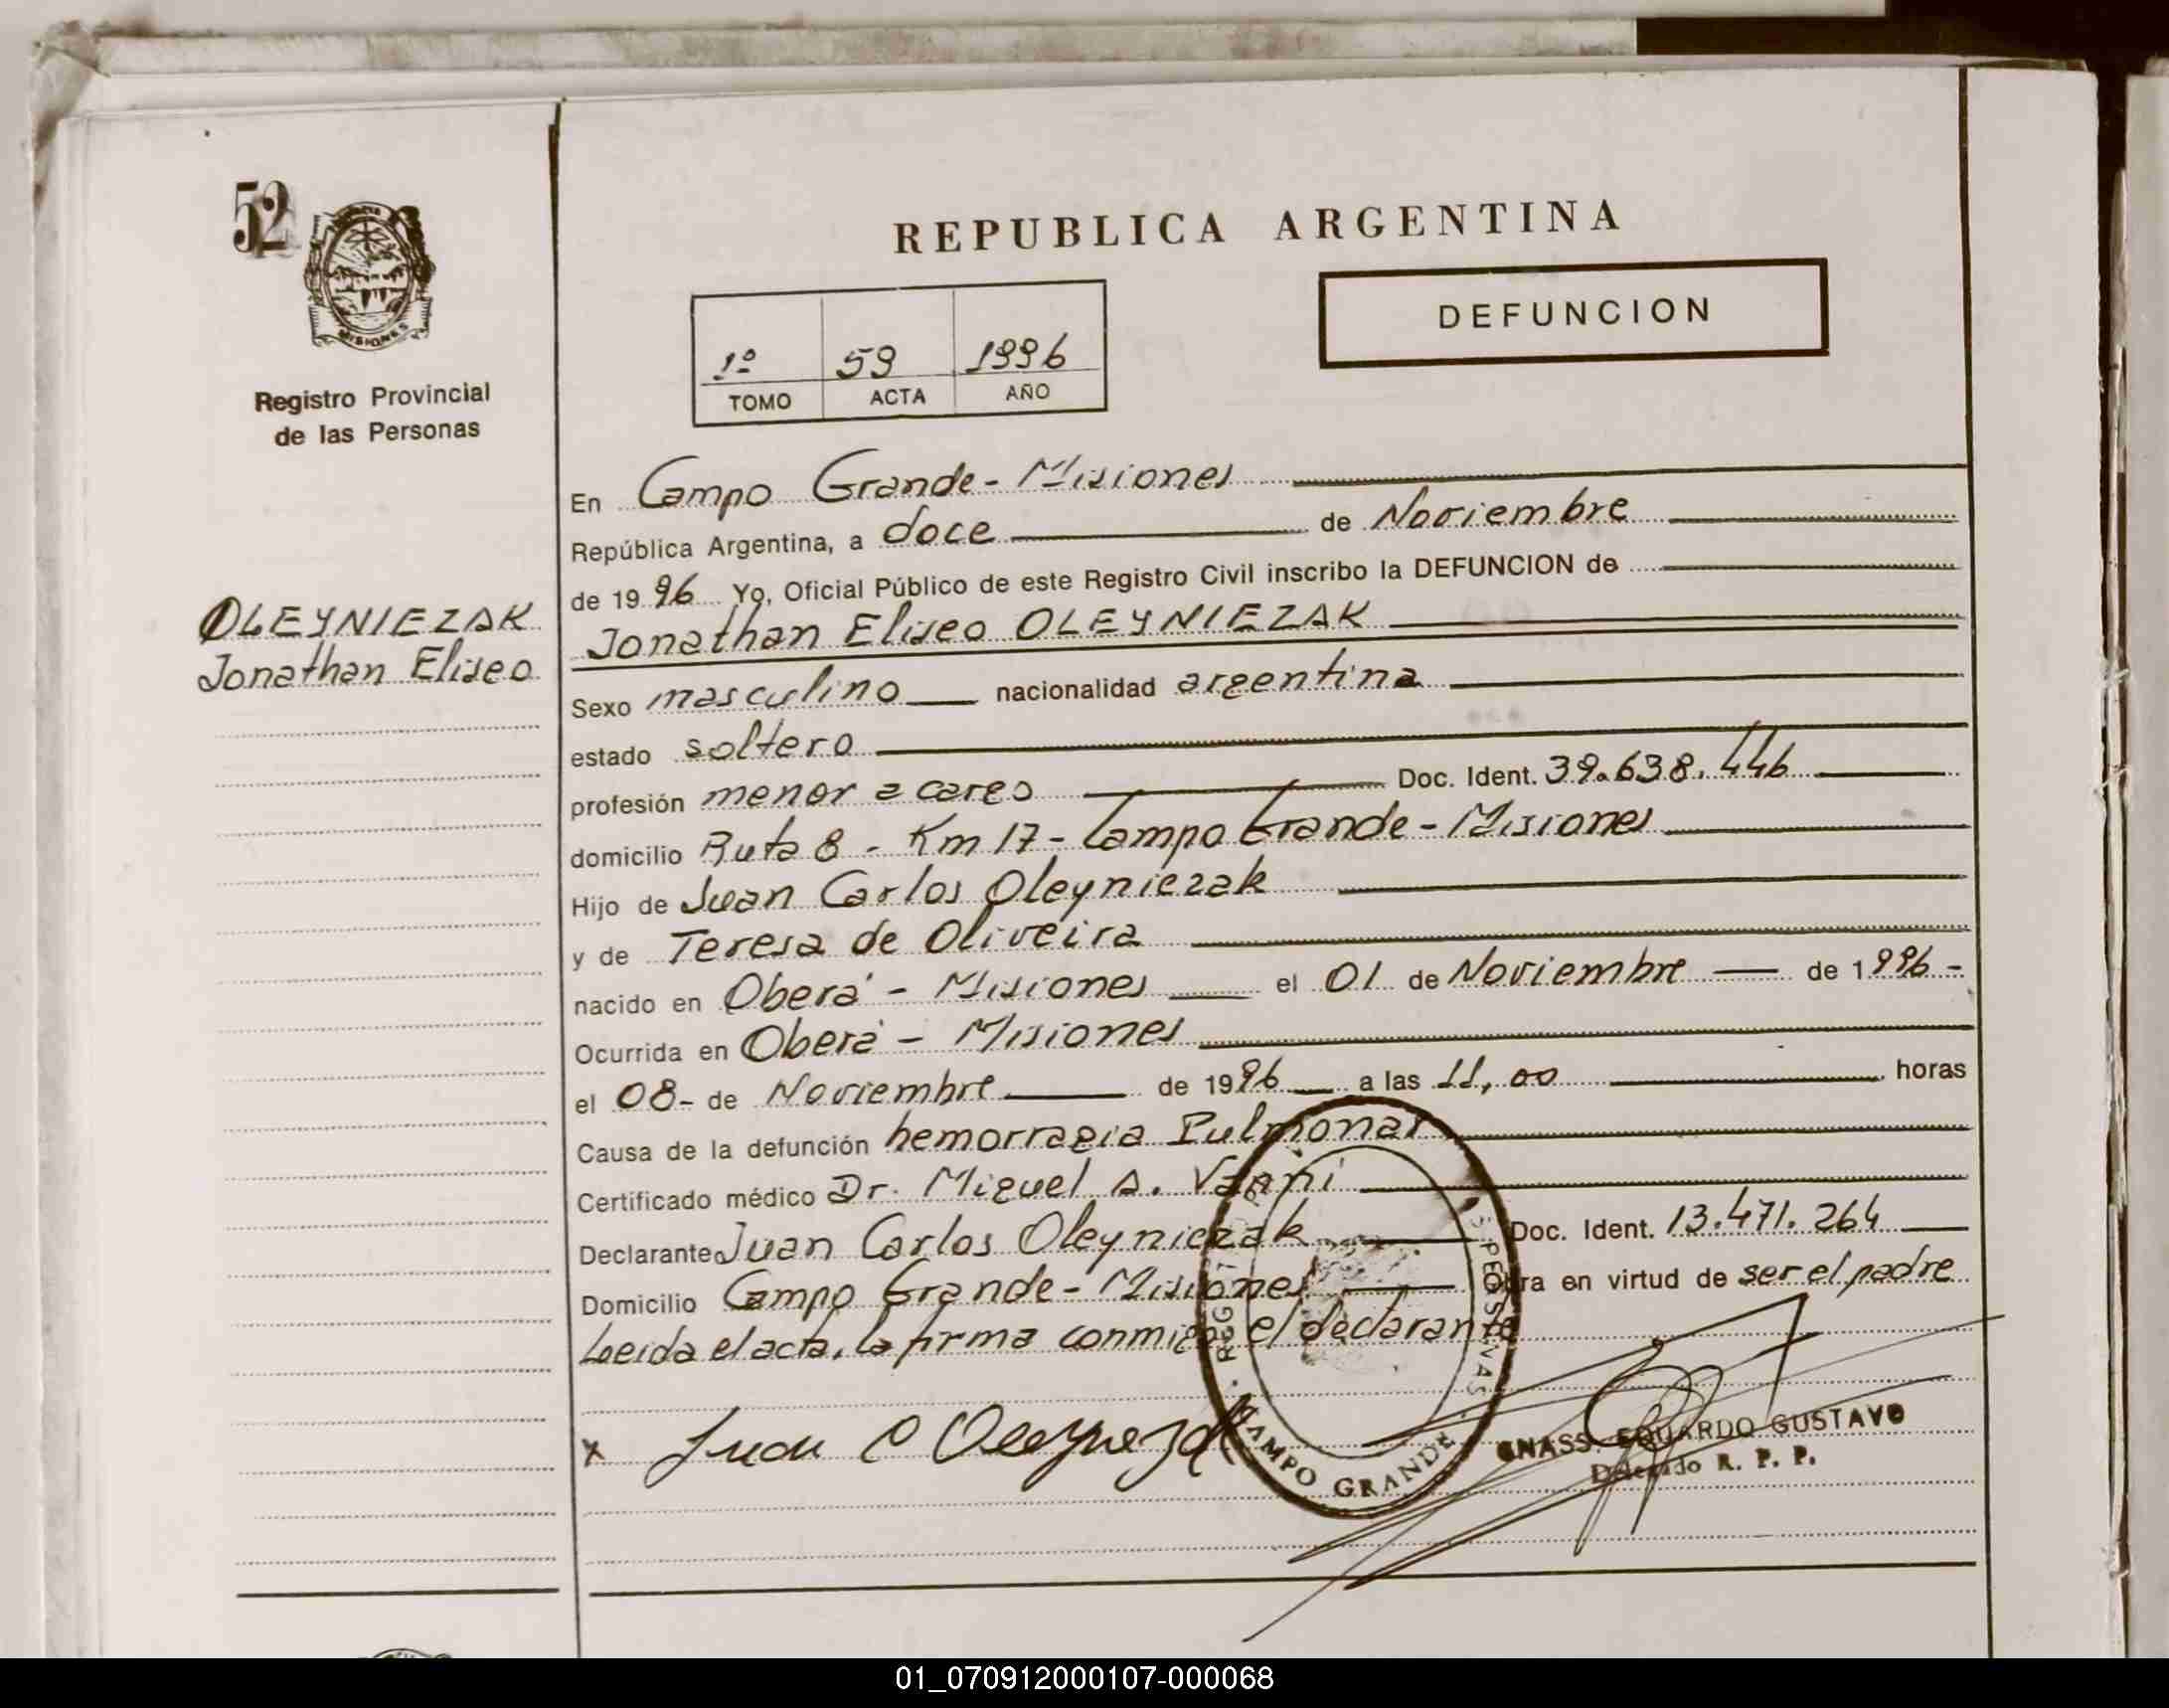 52
MISIONES
Registro Provincial
de las Personas
OLEYNIEZAK
Jonathan Eliseo
REPUBLICA ARGENTINA
DEFUNCION
1º 59 1996
TOMO ACTA AÑO
En Campo Grande - Misiones
República Argentina, a doce de Noviembre
de 1996 Yo, Oficial Público de este Registro Civil inscribo la DEFUNCION de
Jonathan Eliseo OLEYNIEZAK
Sexo masculino nacionalidad argentina
estado soltero
profesión menor a cargo Doc. Ident. 39.638.446
domicilio Ruta 8 - Km 17 - Campo Grande - Misiones
Hijo de Juan Carlos Oleyniezak
y de Teresa de Oliveira
nacido en Oberá - Misiones el 01 de Noviembre de 1996 -
Ocurrida en Oberá - Misiones
el 08 - de Noviembre de 1996 a las 11,00 horas
Causa de la defunción hemorragia Pulmonar
Certificado médico Dr. Miguel A. Vanni
Declarante Juan Carlos Oleyniezak Doc. Ident. 13.471.264
Domicilio Campo Grande - Misiones Obra en virtud de ser el padre
Leida el acta, la firma conmigo el declarante
x Juan C Oleyniezak
CAMPO GRANDE
GNASS EDUARDO GUSTAVO
Delegado R. P. P.
01_070912000107-000068